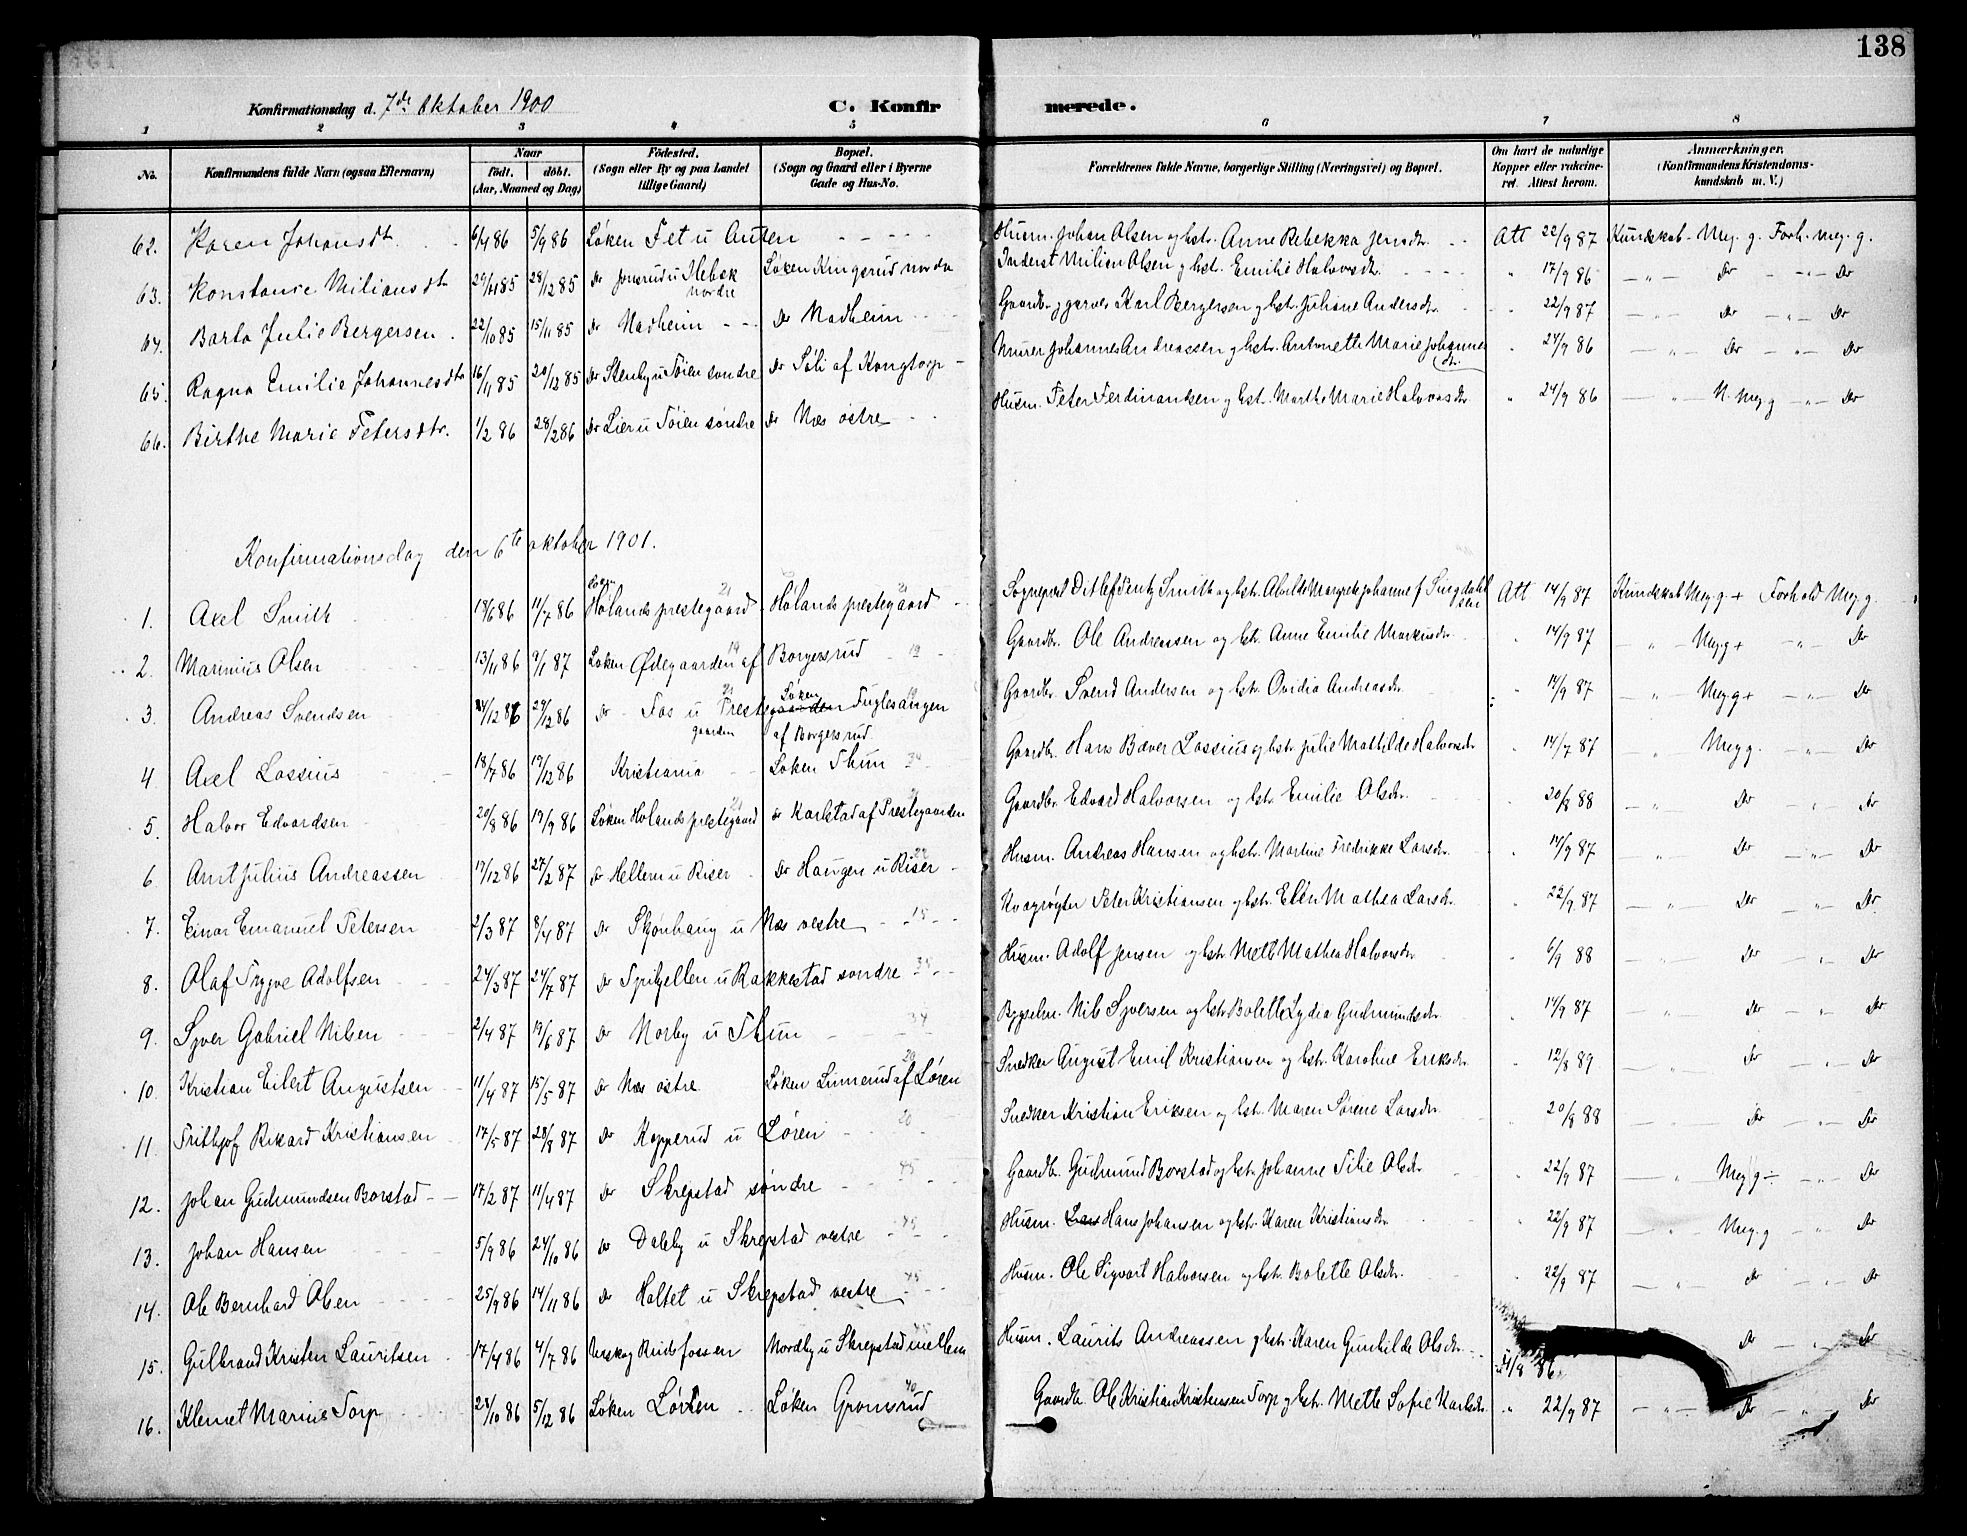 138
Konfirmationsdag d. 7de Oktober 1900 C. Konfirmerede.
1 2 3 4 5 6 7 8
No. Konfirmandens fulde Navn (ogsaa Efternavn) Naar født. døbt. (Aar, Maaned og Dag) Fødested. (Sogn eller By og paa Landet tillige Gaard) Bopæl. (Sogn og Gaard eller i Byerne Gade og Hus-No. Forældrenes fulde Navne, borgerlige Stilling (Næringsvei) og Bopæl. Om havt de naturlige Kopper eller vakcineret. Attest herom. Anmærkninger. (Konfirmandens Kristendomskundskab m. V.)
62. Karen Johansdt. 6/4 86 5/9 86 Løken Fet u Anten Husm. Johan Olsen og hstr. Anne Rebekka Jensdtr. Att 22/9 87 Kundskab Meg. g. Forh. meg. g.
63. Konstanse Miliansdtr 29/11 85 28/12 85 Dr Jonsrud u Ilebæk nordre Løken Kingsrud nordre Inderst Milian Olsen og hstr. Emilie Halvorsdtr. " 17/9 86 — " — Do — " — Do
64. Barta Julie Bergersen 22/10 85 15/11 85 Dr Nadheim Dr Nadheim Gaardbr. og garver Karl Bergersen og hstr. Juliane Andersdtr. " 22/9 87 — " — Do — " — Do
65. Ragna Emilie Johannesdtr 16/11 85 20/12 85 Dr Stenby u Tøien søndre Dr Søli af Kongtorp Murer Johannes Andreassen og hstr. Antonette Marie Johannesdtr. " 24/9 86 — " — Do — " — Do
66. Birthe Marie Petersdtr. 1/2 86 28/2 86 Dr Lier u Tøien søndre Dr Næs østre Husm. Peter Ferdinandsen og hst. Marthe Marie Halvorsdtr " 24/9 86 — " — N. Meg g — " — Do
Konfirmationsdag den 6te oktober 1901.
1. Axel Smith 18/6 86 11/7 86 Hølands prestegaard 21 Hølands prestegaard 21 Sognepræst Ditlef Bentz Smith og hstr. Alvilde Margrete Johanne f Att 14/9 87 Kundskab Meg g + Forhold Meg. g.
2. Marinius Olsen 13/11 86 9/1 87 Løken Ødegaarden af Borgersrud 19 Gaardbr. Ole Andreassen og hstr. Anne Emilie Markusdtr. " 14/9 87 — " — Meg. g + — " — Do
3. Andreas Svendsen 24/12 86 29/12 86 Dr Fos u Prestegaarden Løken Fuglesangen af Borgersrud 19 Gaardbr. Svend Andersen og hstr. Ovidia Andreasdtr. " 14/9 87 — " — Meg g + — " — Do
4. Axel Lossius 18/7 86 19/12 86 Kristiania Løken Thun 34 Gaardbr. Hans Bæver Lossius og hstr. Julie Mathilde Halvorsdtr " 14/7 87 " Meg g. — " — Do
5. Halvor Edvardsen 20/8 86 19/9 86 Løken Hølands prestegaard 21 Dr Karlstad af Prestegaarden Gaardbr. Edvard Halvorsen og hstr. Emilie Olsdtr. " 20/8 88 — " — Do " Do
6. Arnt Julius Andreassen 17/12 86 27/2 87 Dr Hellern u Riser Dr Haugen u Riser Husm. Andreas Hansen og hstr. Martine Fredrikke Larsdtr. " 14/9 87 " Do — " — Do
7. Einar Emanuel Petersen 2/3 87 8/4 87 Dr Skjønhaug u Næs vestre 15 Kvægrøgter Peter Kristiansen og hstr. Ellen Mathea Larsdtr. " 22/9 87 — " — Do — " — Do
8. Olaf Trygve Adolfsen 24/3 87 24/7 87 Dr u Rakkestad søndre 34 Husm. Adolf Jensen og hstr. Mette Mathea Halvorsdtr. " 6/9 88 — " — Do — " — Do
9. Syver Gabriel Nilsen 2/4 87 19/6 87 Dr Norby u Thun 34 Bygselm. Nils Syversen og hstr. Bolette Lydia Gudmundsdtr. " 14/9 87 " Do — " — Do
10. Kristian Eilert Augustsen 11/4 87 15/5 87 Dr Næs østre Løken Linnerud af Løren 20 Snedker August Emil Kristiansen og hstr. Karoline Eriksdtr " 12/8 89 — " — Do — " — Do
11. Frithjof Rikard Kristiansen 17/5 87 28/8 87 Dr Kopperud u Løren 20 Snedker Kristian Eriksen og hstr. Maren Sørene Larsdtr. " 20/8 88 — Do — " — Do
12. Johan Gudmundsen Borstad 17/2 87 11/4 87 Dr Skrepstad søndre 45 Gaardbr. Gudmund Borstad og hstr. Johanne Tilie Olsdtr. " 22/9 87 — " — Meg g ÷ — " — Do
13. Johan Hansen 5/9 86 24/10 86 Dr Dalsby u Skrepstad vestre 45 Husm. Lars Hans Johansen og hstr. Karen Kristiansdtr. " 22/9 87 — " — Meg. g " Do
14. Ole Bernhard Olsen 25/9 86 14/11 86 Dr Holtet u Skrepstad vestre 45 Husm. Ole Sigvart Halvorsen og hstr. Bolette Olsdtr. " 22/9 87 " Do — " — Do
15. Gulbrand Kristen Lauritsen 17/4 86 4/7 86 Urskog Rindsfossen Nordby u Skrepstad mellem 45 Husm. Laurits Andreassen og hstr. Karen Gunhilde Olsdtr. 31/8 86 Do — " — Do
16. Klemet Marius Torp 28/10 86 5/12 86 Løken Løren Løken Gromsrud 40 Gaardbr. Ole Kristian Kristensen Torp og hstr. Mette Sofie Karlsdtr. " 22/9 87 — " — Do — " — Do